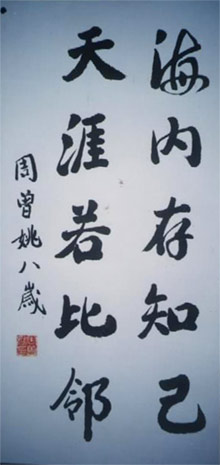 海内存知己
天涯若比邻
周曾姚八岁